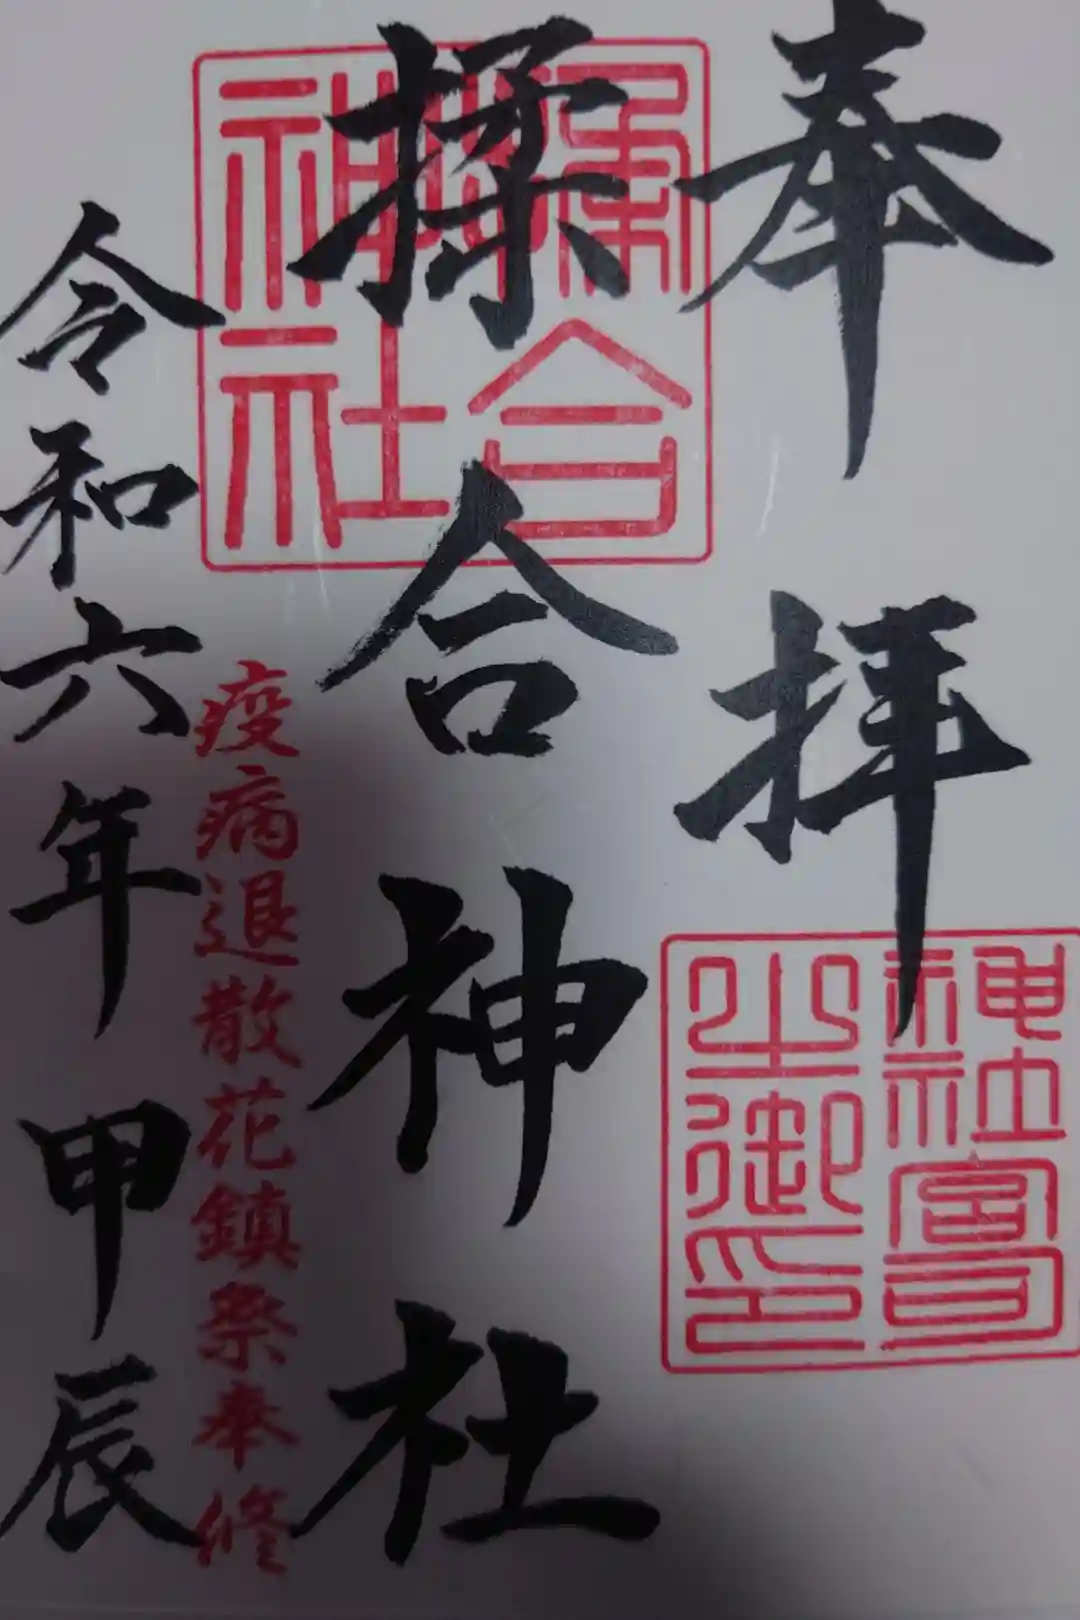 奉拝
神社宮司
之御印
揉合神社
揉合
神社
疫病退散花鎮祭奉修
令和六年甲辰